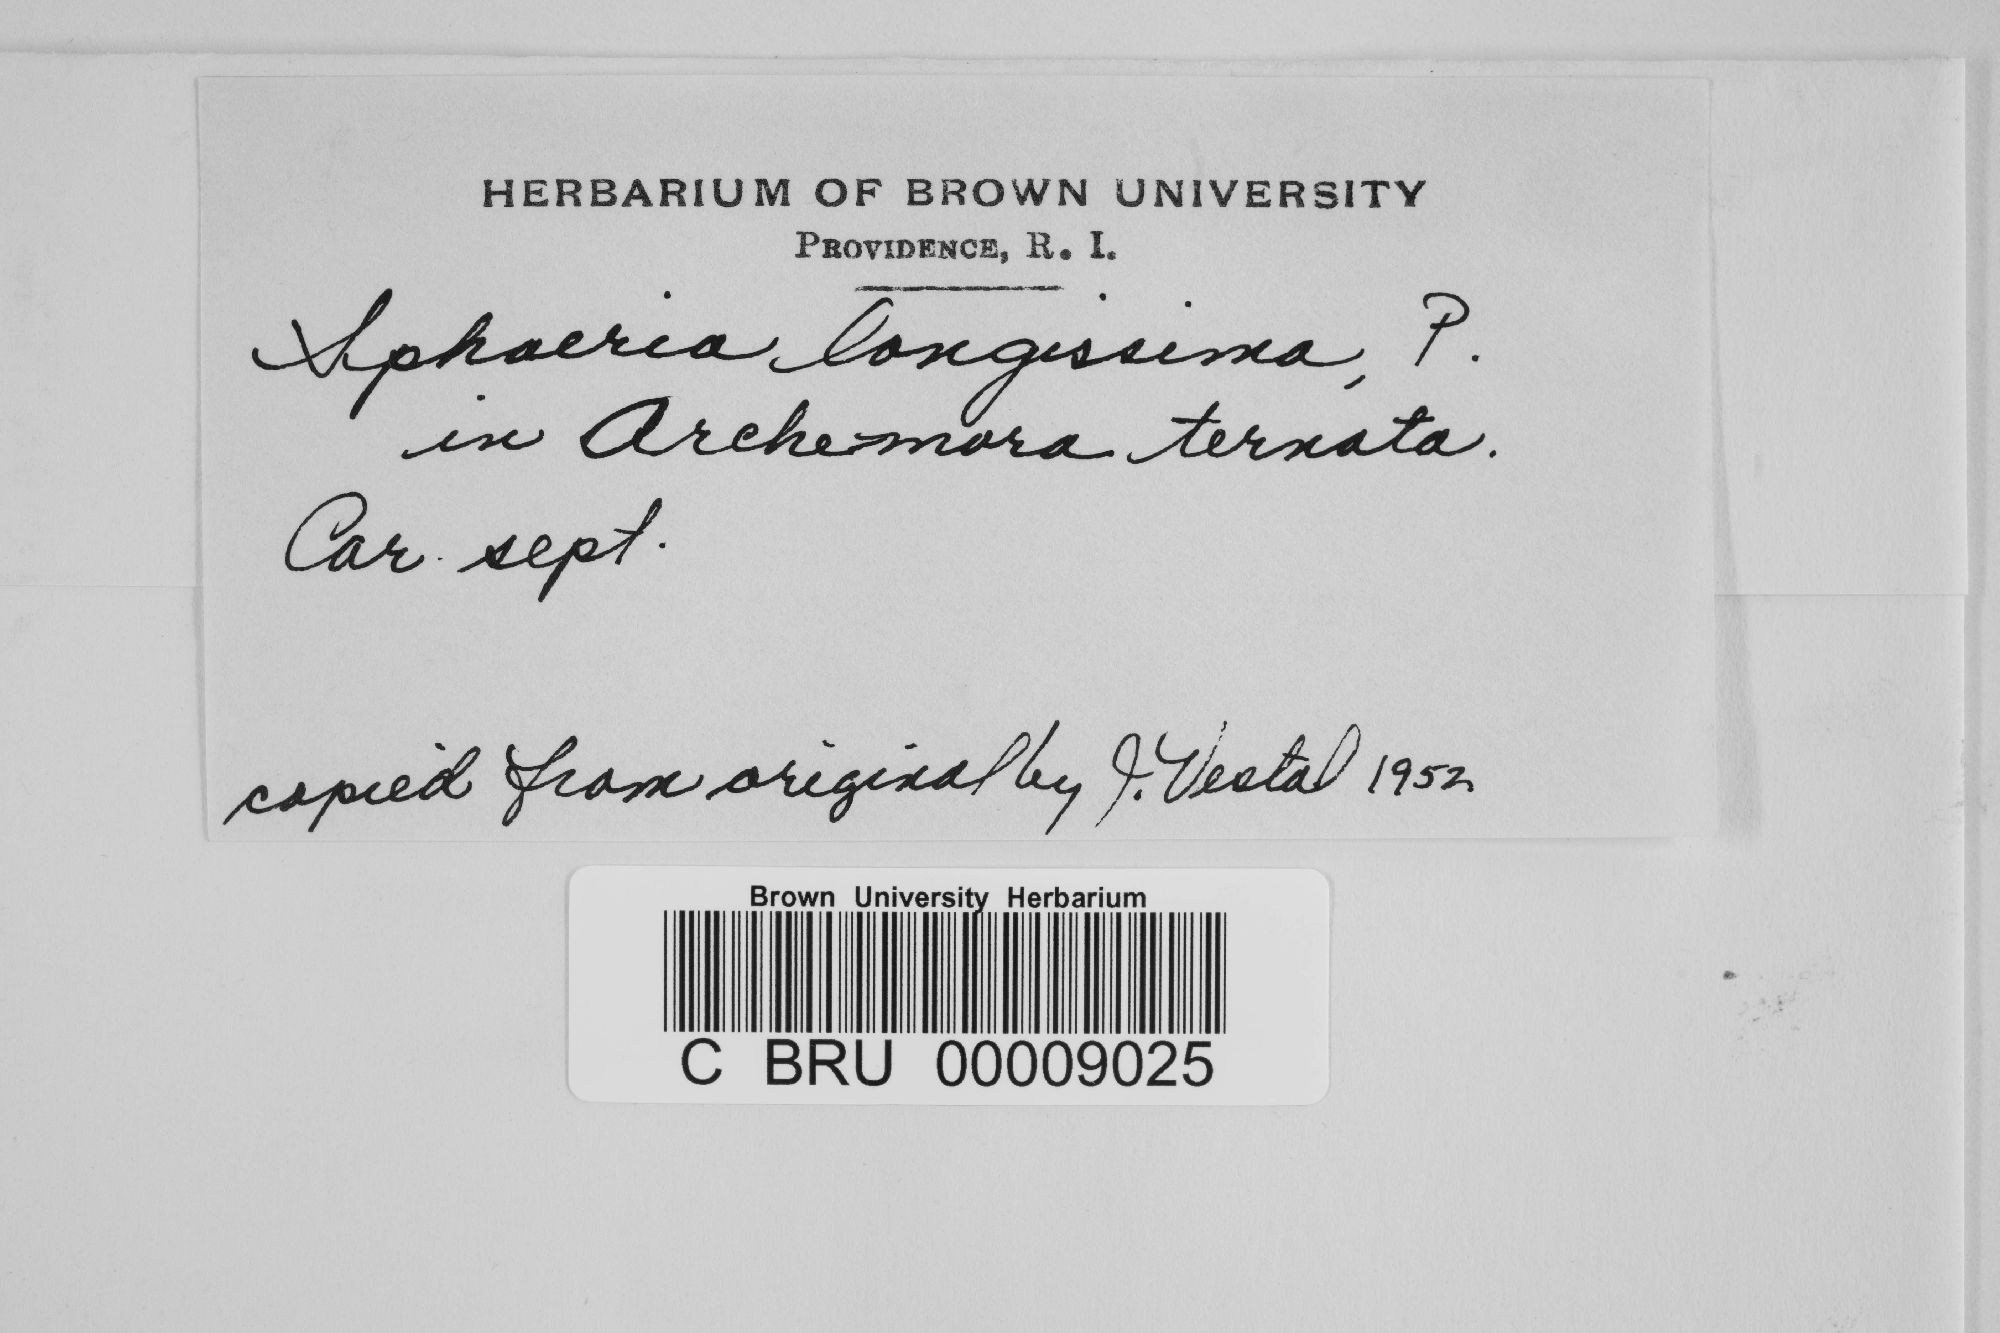 HERBARIUM OF BROWN UNIVERSITY
PROVIDENCE, R. I.
Sphaeria longissima, P.
in Arche-mora ternata.
Car. sept.
copied from original by J. Vestal 1952
Brown University Herbarium
C BRU 00009025